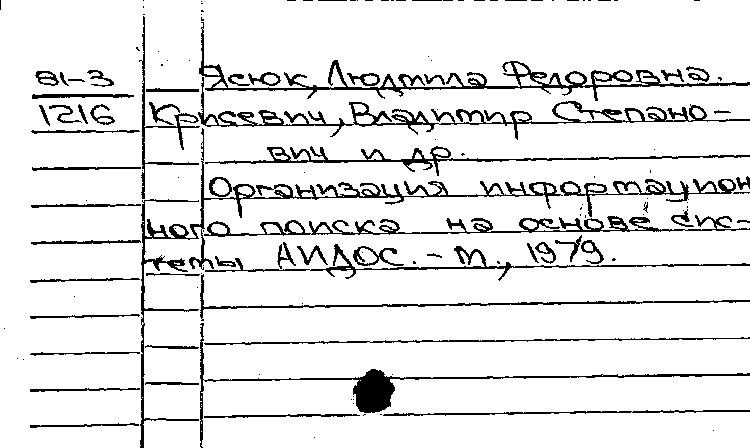 81-3 Ясюк, Людмила Федоровна.
1216 Крисевич, Владимир Степано-
вич и др.
Организация информацион
ного поиска на основе сис-
темы АИДОС. - М., 1979.